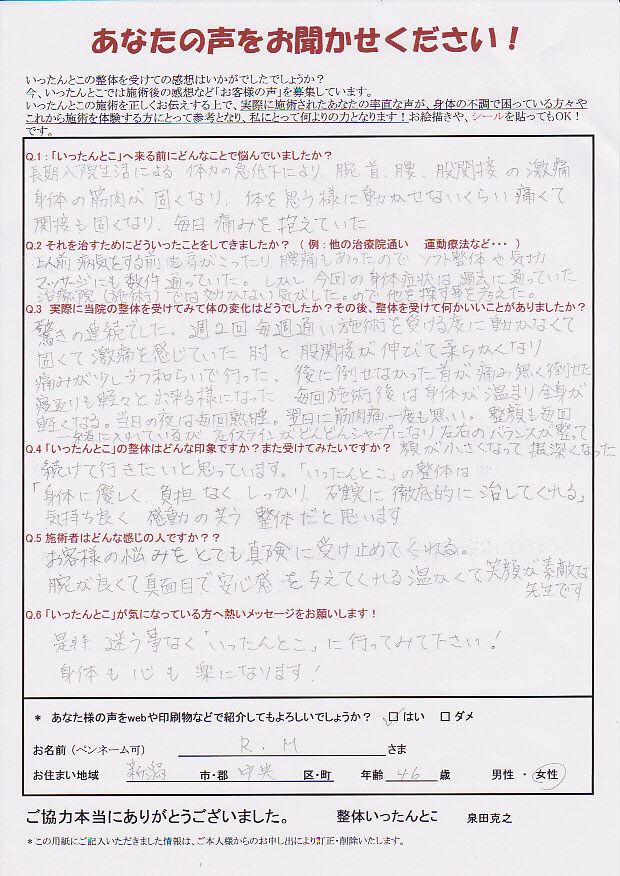 あなたの声をお聞かせください！
いったんとこの整体を受けての感想はいかがでしたでしょうか？
今、いったんとこでは施術後の感想など「お客様の声」を募集しています。
いったんとこの施術を正しくお伝えする上で、実際に施術されたあなたの率直な声が、身体の不調で困っている方々や
これから施術を体験する方にとって参考となり、私にとって何よりの力となります！お絵描きや、シールを貼ってもOK！
です。
Q.1：「いったんとこ」へ来る前にどんなことで悩んでいましたか？
長期入院生活による 体力の急低下により、腕、首、腰、股関接の激痛
身体の筋肉が固くなり、体を思う様に動かせないくらい痛くて
関接も固くなり、毎日痛みを抱えていた
Q.2 それを治すためにどういったことをしてきましたか？（例：他の治療院通い 運動療法など・・・）
以前病気をする前も肩がこったり、腰痛もあったのでソフト整体や
マッサージにも数件通っていた。しかし今回の身体症状は過去に通っていた
治療院（施術）では効かない気がした。ので他を探す事を考えた。
Q.3 実際に当院の整体を受けてみて体の変化はどうでしたか？その後、整体を受けて何かいいことがありましたか？
驚きの連続でした。週2回毎週通い施術を受ける度に動かなくて
固くて激痛を感じていた肘と股関接が伸びて柔らかくなり
痛みが少しづつ和らいで行った。後に倒せなかった首が痛み無く倒せた
寝返りも軽々と出来る様になった 毎回施術後は身体が温まり全身が
軽くなる。当日の夜は毎回熟睡。翌日に筋肉痛一度も無い。整顔も毎回
一緒に入れているが、フェイスラインがどんどんシャープになり左右のバランスが整って
顔が小さくなって堀深くなった
Q.4「いったんとこ」の整体はどんな印象ですか？また受けてみたいですか？
続けて行きたいと思っています。「いったんとこ」の整体は
「身体に優しく、負担なく、しっかり、確実に徹底的に治してくれる」
気持ち良く、感動の笑う整体だと思います
Q.5 施術者はどんな感じの人ですか？？
お客様の悩みをとても真険に受け止めてくれる。
腕が良くて真面目で安心感を与えてくれる温かくて笑顔が素敵な
先生です
Q.6「いったんとこ」が気になっている方へ熱いメッセージをお願いします！
是非 迷う事なく「いったんとこ」に行ってみて下さい！
身体も心も楽になります！
* あなた様の声をwebや印刷物などで紹介してもよろしいでしょうか？ ☑はい □ダメ
お名前（ペンネーム可） R.M さま
お住まい地域 新潟 市・郡 中央 区・町 年齢 46 歳 男性・女性
ご協力本当にありがとうございました。 整体いったんとこ 泉田克之
*この用紙にご記入いただきました情報は、ご本人様からのお申し出により訂正・削除いたします。